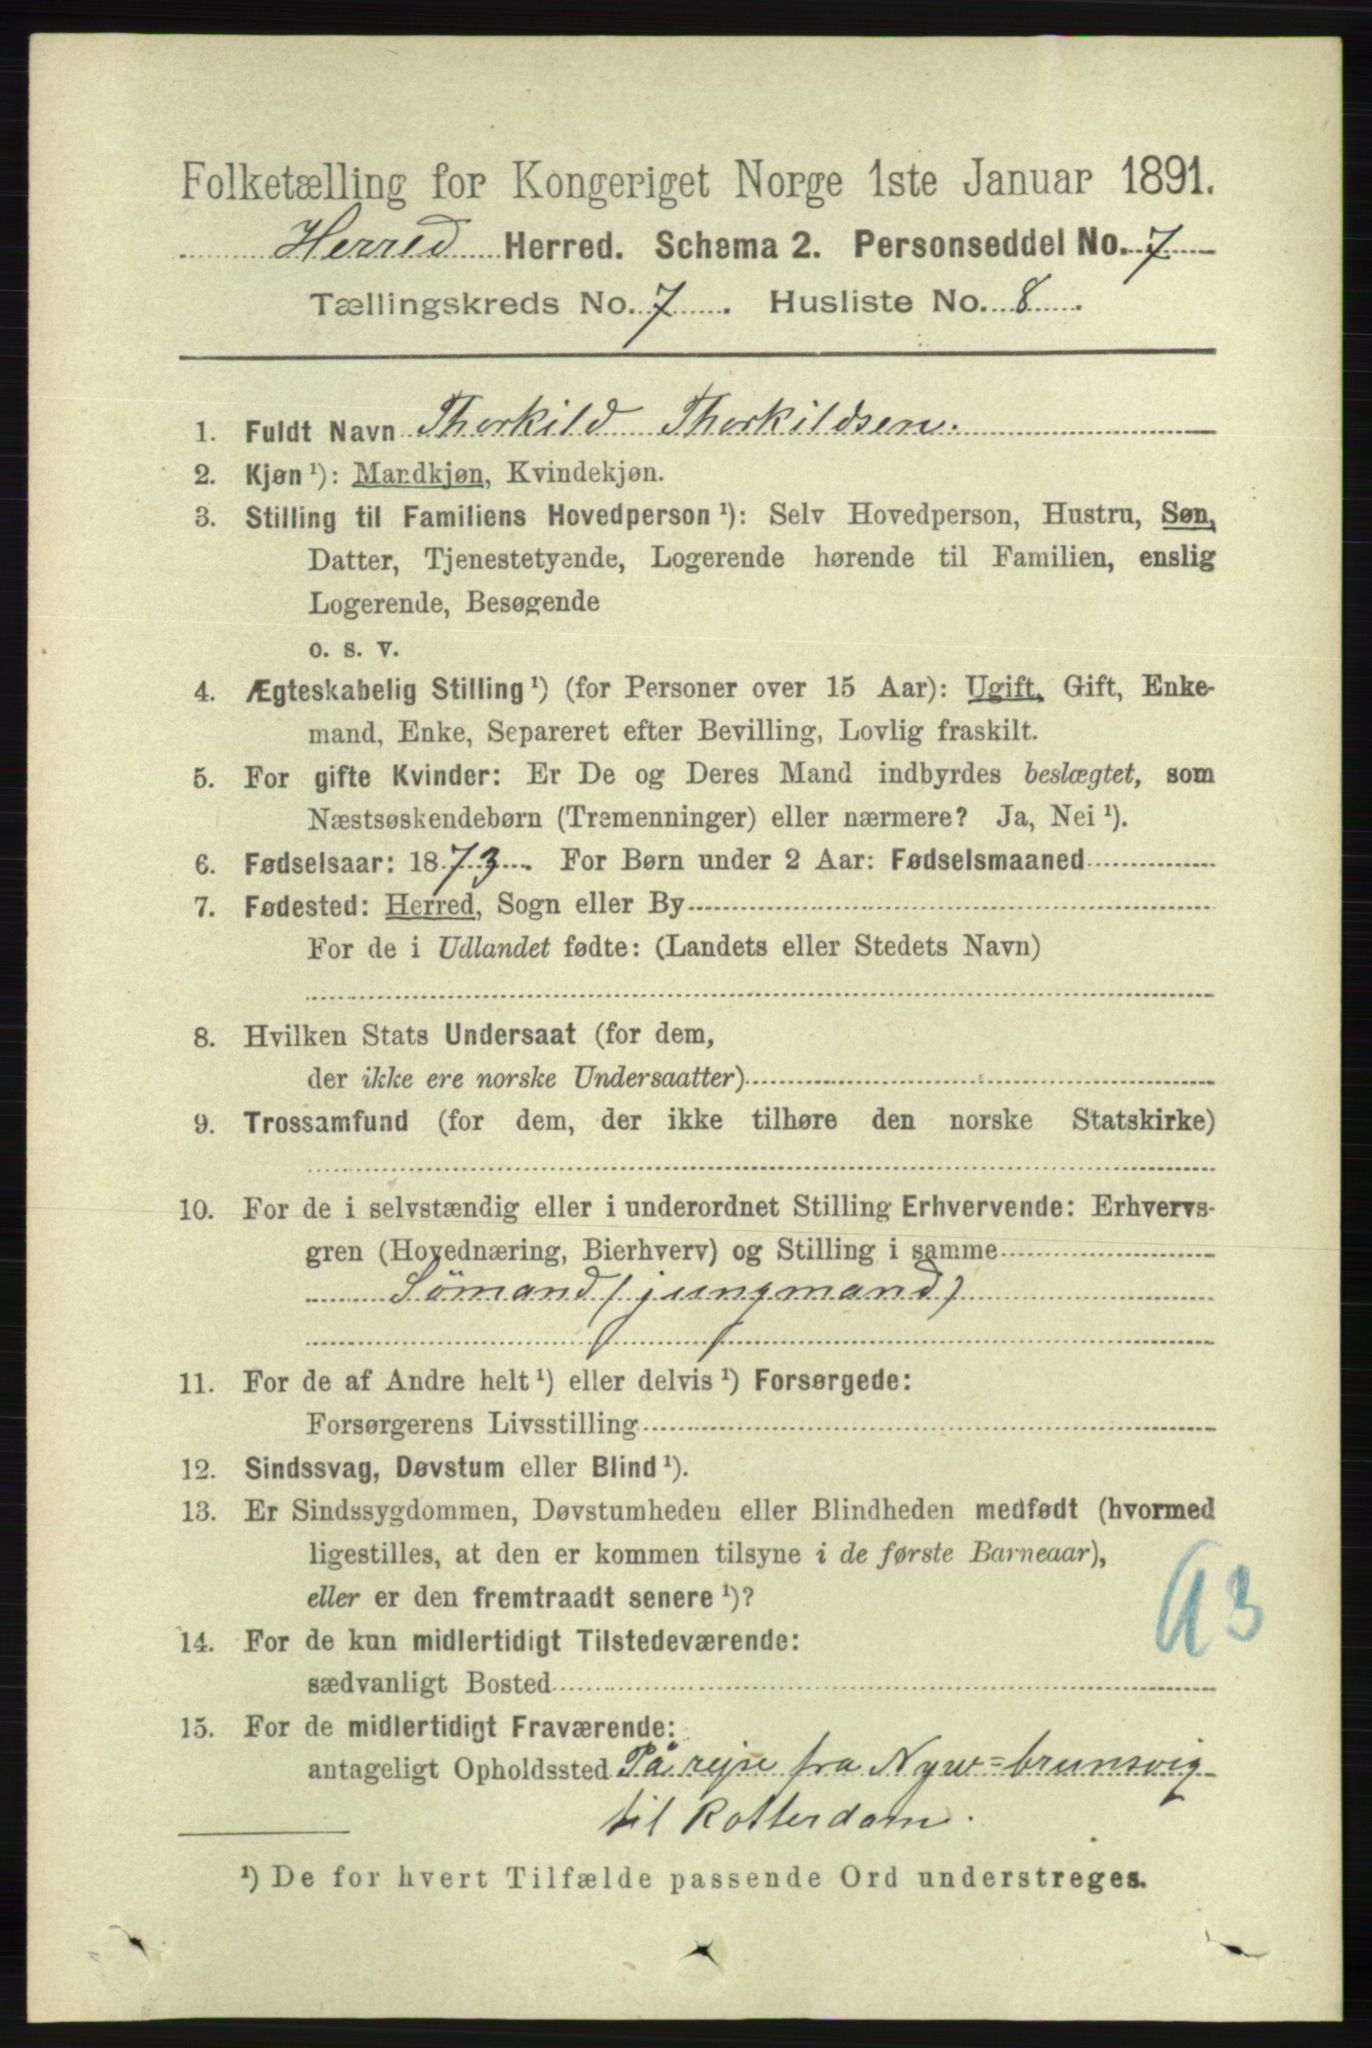 Folketælling for Kongeriget Norge 1ste Januar 1891.
Herred Herred. Schema 2. Personseddel No. 7
Tællingskreds No. 7. Husliste No. 8.
1. Fuldt Navn Thorkild Thorkildsen.
2. Kjøn ¹): Mandkjøn, Kvindekjøn.
3. Stilling til Familiens Hovedperson ¹): Selv Hovedperson, Hustru, Søn,
Datter, Tjenestetyende, Logerende hørende til Familien, enslig
Logerende, Besøgende
o. s. v.
4. Ægteskabelig Stilling ¹) (for Personer over 15 Aar): Ugift, Gift, Enke-
mand, Enke, Separeret efter Bevilling, Lovlig fraskilt.
5. For gifte Kvinder: Er De og Deres Mand indbyrdes beslægtet, som
Næstsøskendebørn (Tremenninger) eller nærmere? Ja, Nei ¹).
6. Fødselsaar: 1873. For Børn under 2 Aar: Fødselsmaaned
7. Fødested: Herred, Sogn eller By
For de i Udlandet fødte: (Landets eller Stedets Navn)
8. Hvilken Stats Undersaat (for dem,
der ikke ere norske Undersaatter)
9. Trossamfund (for dem, der ikke tilhøre den norske Statskirke)
10. For de i selvstændig eller i underordnet Stilling Erhvervende: Erhvervs-
gren (Hovednæring, Bierhverv) og Stilling i samme
Sömand (jungmand)
11. For de af Andre helt ¹) eller delvis ¹) Forsørgede:
Forsørgerens Livsstilling
12. Sindssvag, Døvstum eller Blind ¹).
13. Er Sindssygdommen, Døvstumheden eller Blindheden medfødt (hvormed
ligestilles, at den er kommen tilsyne i de første Barneaar),
eller er den fremtraadt senere ¹)?
14. For de kun midlertidigt Tilstedeværende:
sædvanligt Bosted
15. For de midlertidigt Fraværende:
antageligt Opholdssted På rejse fra Nyw=brunsvig
til Rotterdam.
¹) De for hvert Tilfælde passende Ord understreges.